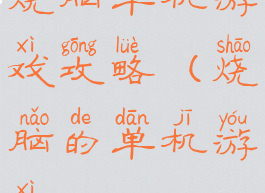 烧脑单机游
xì gōng lüè （ shāo
戏攻略（烧
nǎo de dān jī yóu
脑的单机游
xì